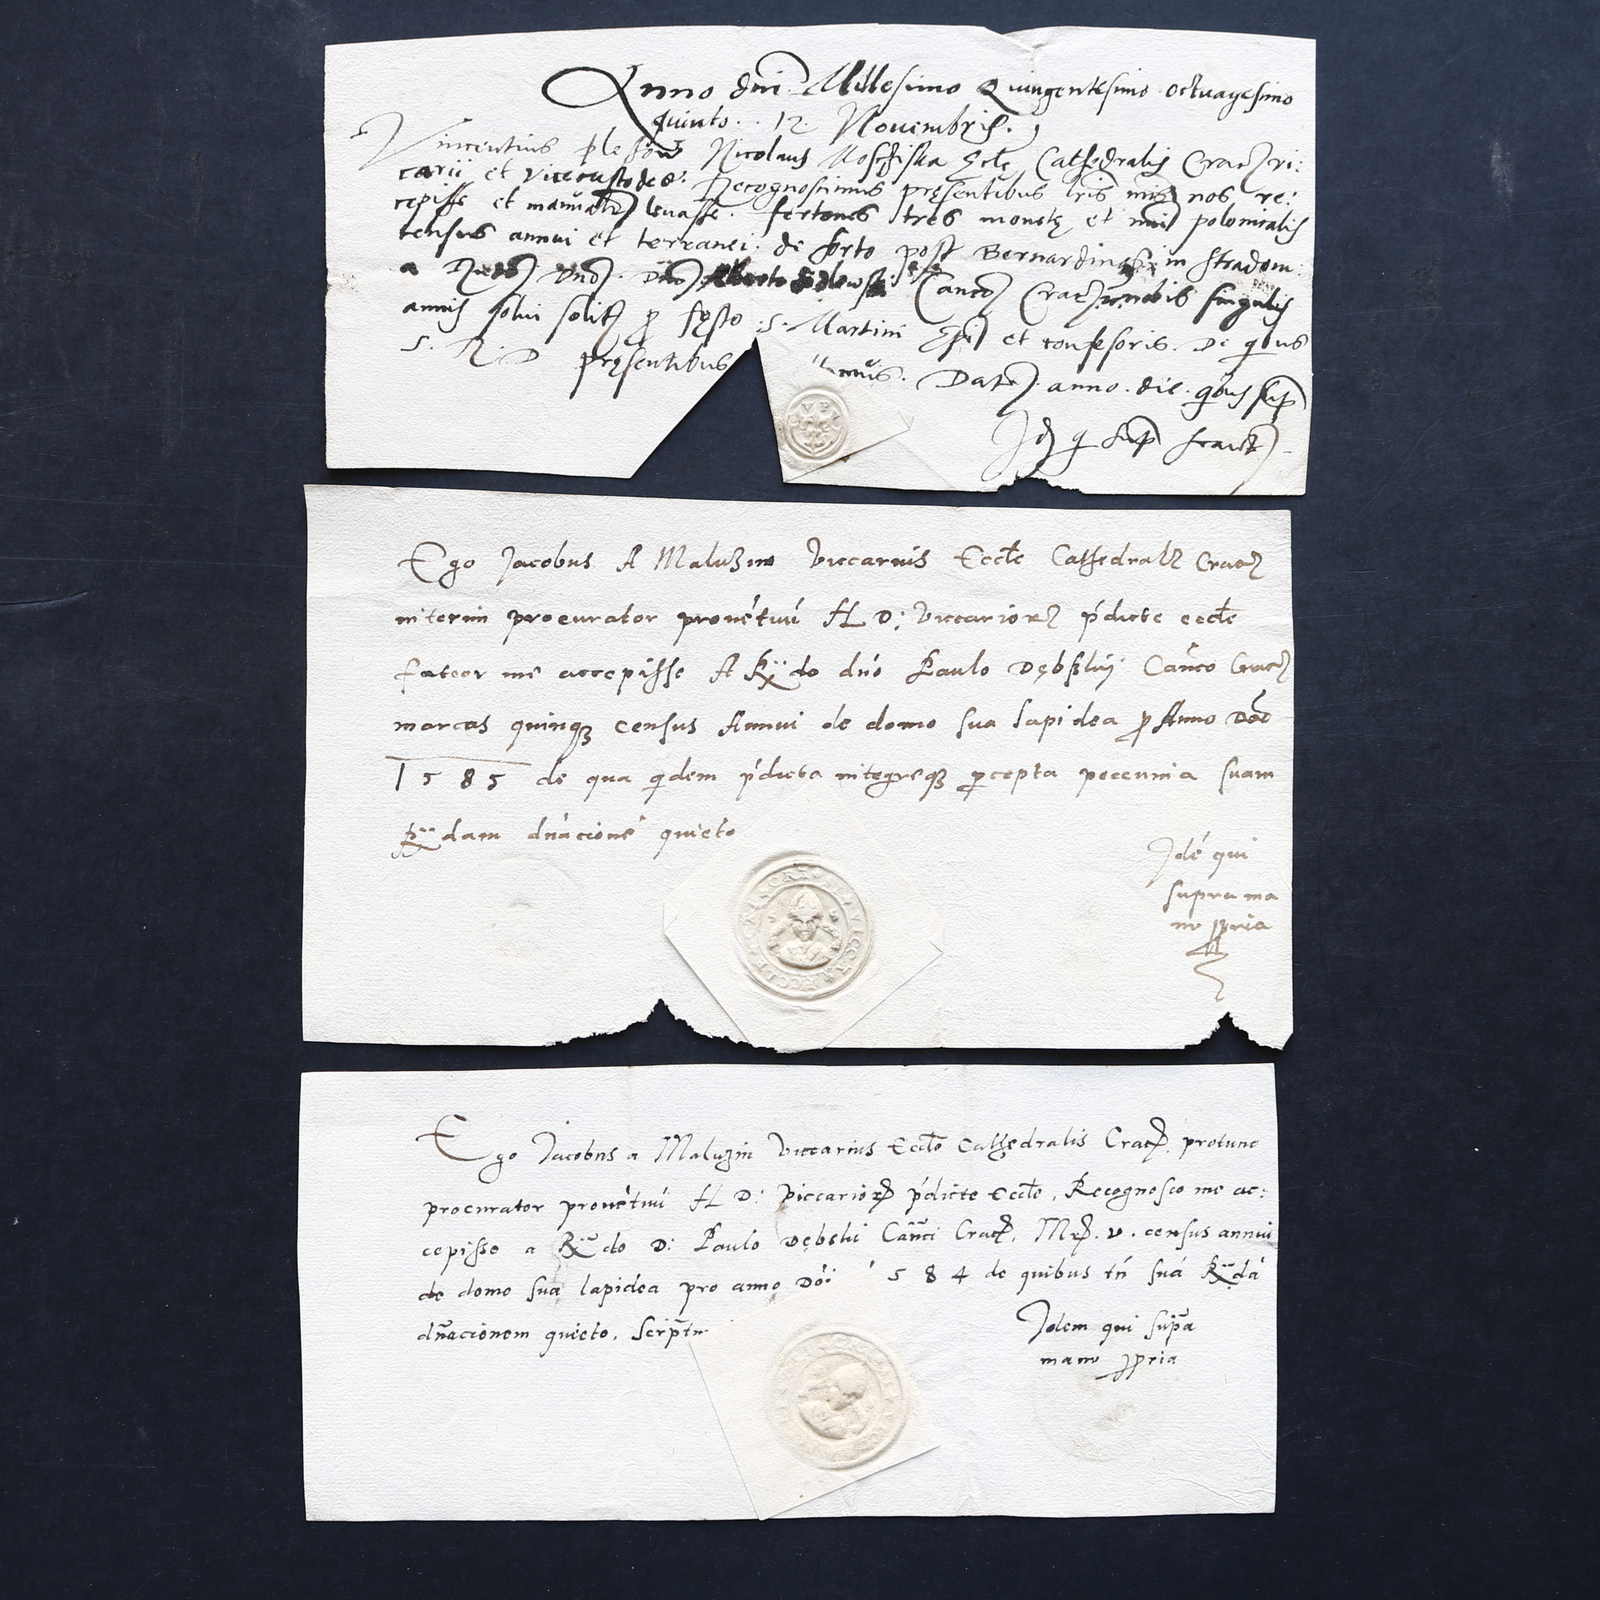 Anno dni Millesimo Quingentesimo octuagesimo
quinto. 12. Novembris.
Vincentius Nicolaus Eccle Cathedralis Crac vi:
carii et vicecustodes. Recognoscimus presentibus lris nris nos re:
cepisse et levasse. fertones tres monete et polonicalis
census annui et terranei. de horto post Bernardinos in Stradom:
a Canco Crac nobis singulis
annis solvi solit p festo .S. Martini Epi et confesoris. De qbus
S. R. D presentibus Dat anno. die. qbus sup
Id q sup
Ego Jacobus A Maluzin Viccarius Eccle Cathedral Crac
interim procurator provetuu H D: Viccarior pdicte eccle
fateor me accepisse A Rdo dno Paulo Dębski Canco Crac
marcas quinq census Annui de domo sua lapidea p Anno Dni
1585 de qua qdem pdicta integreq pcepta peccunia suam
Rdam dnacione quieto
Ide qui
supra ma
nu ppria
Ego Jacobus a Maluzin Viccarius Eccle Cathedralis Crac. protunc
procurator provetuu H D: Viccarior pdicte Eccle. Recognosco me ac:
cepisse a Rdo D: Paulo Dębski Canci Crac. Mr. v. census annui
de domo sua lapidea pro anno Doi 584 de quibus tn sua Rda
dnacionem quieto. Scriptu
Idem qui supa
manu ppria